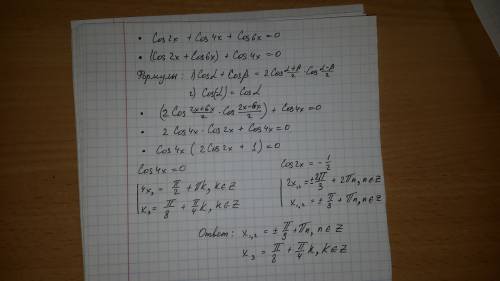 • Cos2x + Cos4x + Cos6x = 0
• (Cos2x + Cos6x) + Cos4x = 0
Формулы: 1) Cosα + Cosβ = 2Cos (α+β)/2 · Cos (α-β)/2
2) Cos(-α) = Cosα
• (2 Cos (2x+6x)/2 · Cos (2x-6x)/2) + Cos4x = 0
• 2 Cos4x · Cos2x + Cos4x = 0
• Cos4x (2Cos2x + 1) = 0
Cos4x = 0
4x₃ = π/2 + πk, k∈Z
x₃ = π/8 + π/4 k, k∈Z
Cos2x = -1/2
2x₁,₂ = ± 2π/3 + 2πn, n∈Z
x₁,₂ = ± π/3 + πn, n∈Z
Ответ: x₁,₂ = ± π/3 + πn, n∈Z
x₃ = π/8 + π/4 k, k∈Z